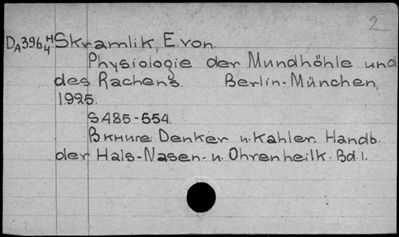 2
DA396 H/4 Skramlik, E.von.
Physiologie der Mundhöhle und
des Rachens. Berlin-München,
1925.
S485-554.
Вкниге: Denker u. Kahler. Handb.
der Hals-Nasen- u. Ohrenheilk. Bd.1.